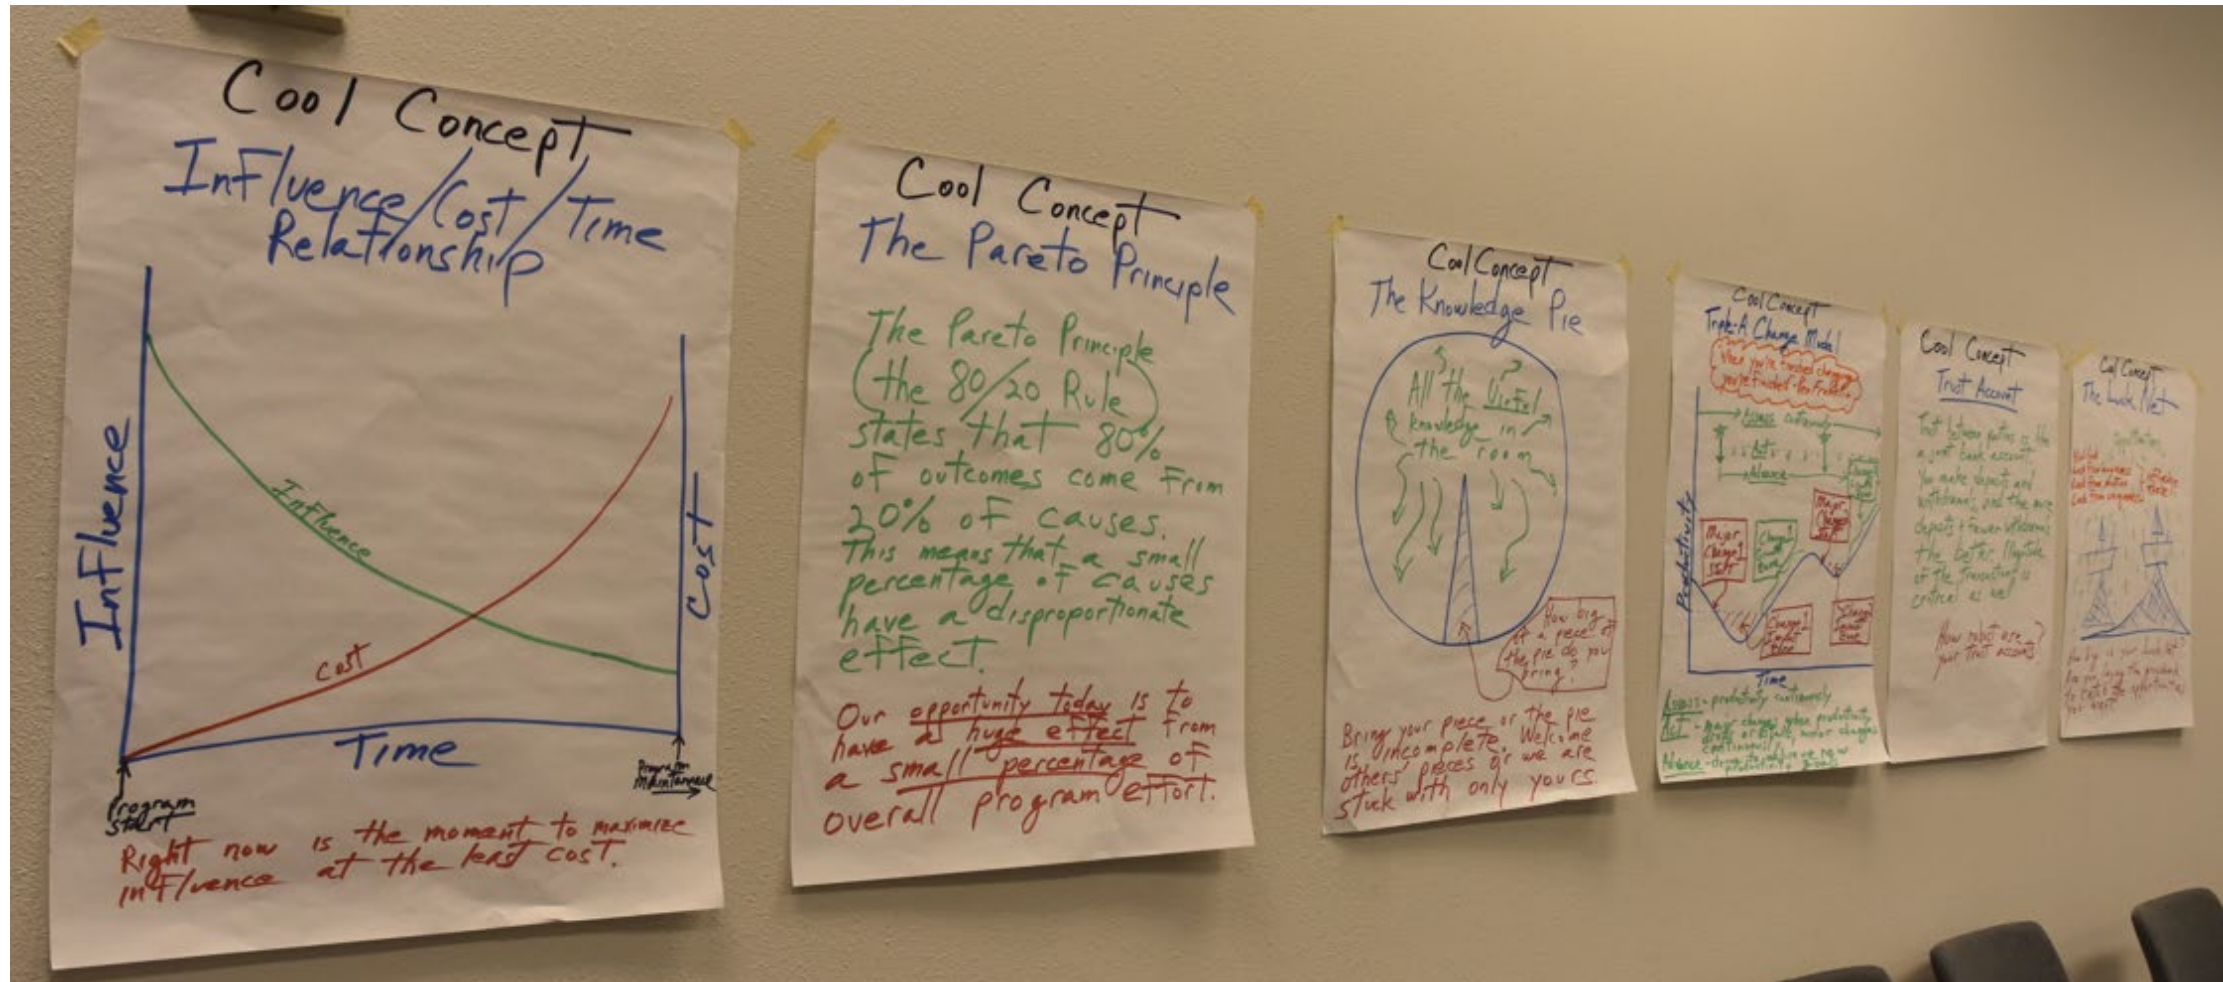 Cool Concept
Influence/Cost/Time
Relationship
Influence
Influence
Cost
Cost
Time
Program
Start
Program
Maintenance
Right now is the moment to maximize
influence at the least cost.
Cool Concept
The Pareto Principle
The Pareto Principle
(the 80/20 Rule)
states that 80%
of outcomes come from
20% of causes.
This means that a small
percentage of causes
have a disproportionate
effect.
Our opportunity today is to
have a huge effect from
a small percentage of
overall program effort.
Cool Concept
The Knowledge Pie
All the useful
knowledge in
the room
How big
of a piece of
the pie do you
bring?
Bring your piece or the pie
is incomplete. Welcome
others' pieces or we are
stuck with only yours.
Cool Concept
Triple-A Change Model
When you're finished changing
you're finished - Ben Franklin
Assess continuously
Act
Advance
Productivity
Major
Change 1
Change 1
Growth
Major
Change
Change 1
Time
Assess - productivity continuously
Act - Major changes when productivity
continuously
Advance - new
productivity
Cool Concept
Trust Account
Trust between parties is like
a joint bank account.
You make deposits and
withdrawals, and the more
deposits & fewer withdrawals
the better. Magnitude
of the transactions is
critical as well
How robust are
your trust accounts?
Cool Concept
The Luck Net
How big is your luck net?